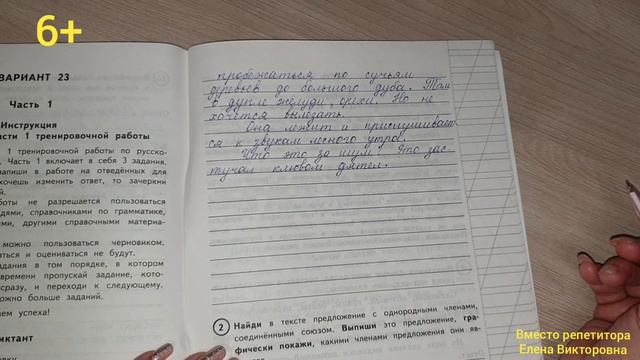 6+
ВАРИАНТ 23
Часть 1
Инструкция
части 1 тренировочной работы
1 тренировочной работы по русско-
Часть 1 включает в себя 3 задания.
напиши в работе на отведённых для
хочешь изменить ответ, то зачеркни
ой.
боты не разрешается пользоваться
дями, справочниками по грамматике,
ми, другими справочными материа-
можно пользоваться черновиком.
ться и оцениваться не будут.
адания в том порядке, в котором
времени пропускай задание, кото-
сразу, и переходи к следующему.
ожно больше заданий.
ем успеха!
иктант
пробежаться по сучьям
деревьев до большого дуба. Там
в дупле жёлуди, орехи. Но не
хочется вылезать.
Она лежит и прислушивает
ся к звукам лесного утра.
Что это за шум? Это зас-
тучал клювом дятел.
2 Найди в тексте предложение с однородными членами,
соединёнными союзом. Выпиши это предложение, гра-
фически покажи, какими членами предложения они яв-
Вместо репетитора
Елена Викторовна